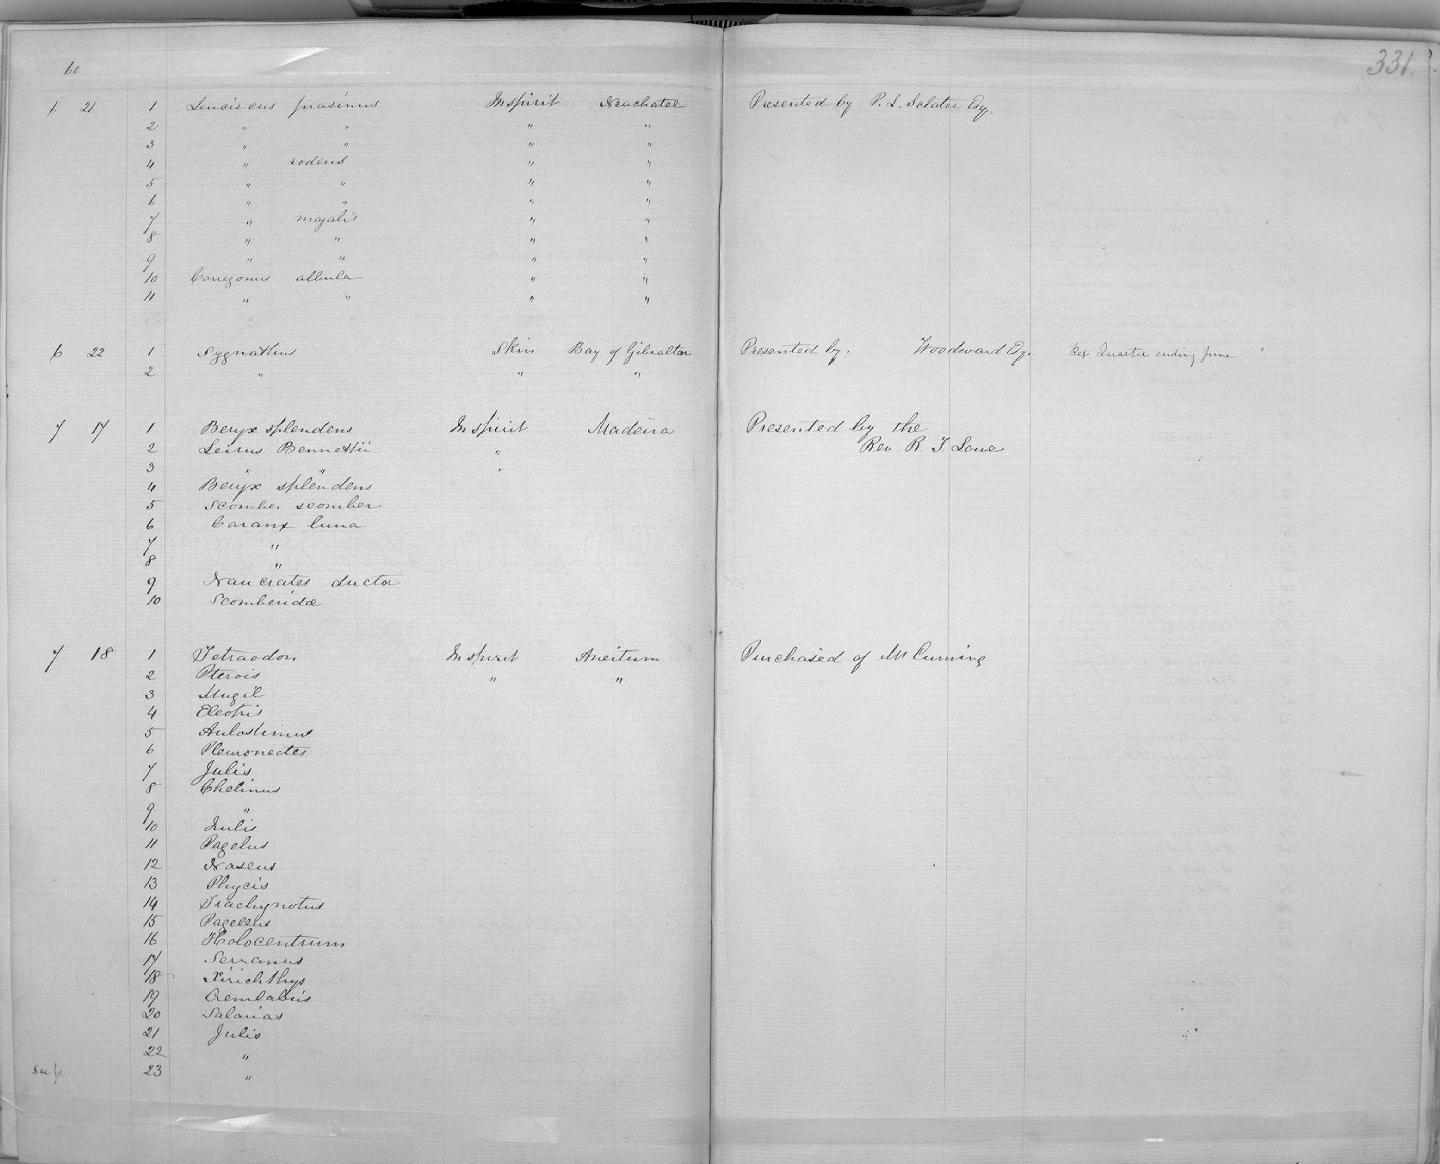 60
331.
6 21 1 Leuciscus prasinus In spirit Neuchatel Presented by P. L. Sclater Esq.
2 " " " "
3 " " " "
4 " rodens " "
5 " " " "
6 " " " "
7 " majalis " "
8 " " " "
9 " " " "
10 Coregonus albula " "
11 " " " "
6 22 1 Sygnathus Skin Bay of Gibraltar Presented by. Woodward Esq. Quarter ending June
2 " " "
7 17 1 Beryx splendens In spirit Madeira Presented by the
2 Leirus Bennettii " Rev. R. T. Lowe
3 " " "
4 Beryx splendens
5 Scomber scomber
6 Caranx luna
7 "
8 "
9 Naucrates ductor
10 Scomberidæ
7 18 1 Tetraodon In spirit Aneitum Purchased of Mr Cuming
2 Pterois " "
3 Mugil
4 Eleotris
5 Aulostimus
6 Pleuronectes
7 Julis
8 Chelinus
9 "
10 Julis
11 Pagelus
12 Naseus
13 Phycis
14 Trachynotus
15 Pagellus
16 Holocentrum
17 Serranus
18 Xirichthys
19 Crenilabris
20 Salarias
21 Julis
22 "
23 "